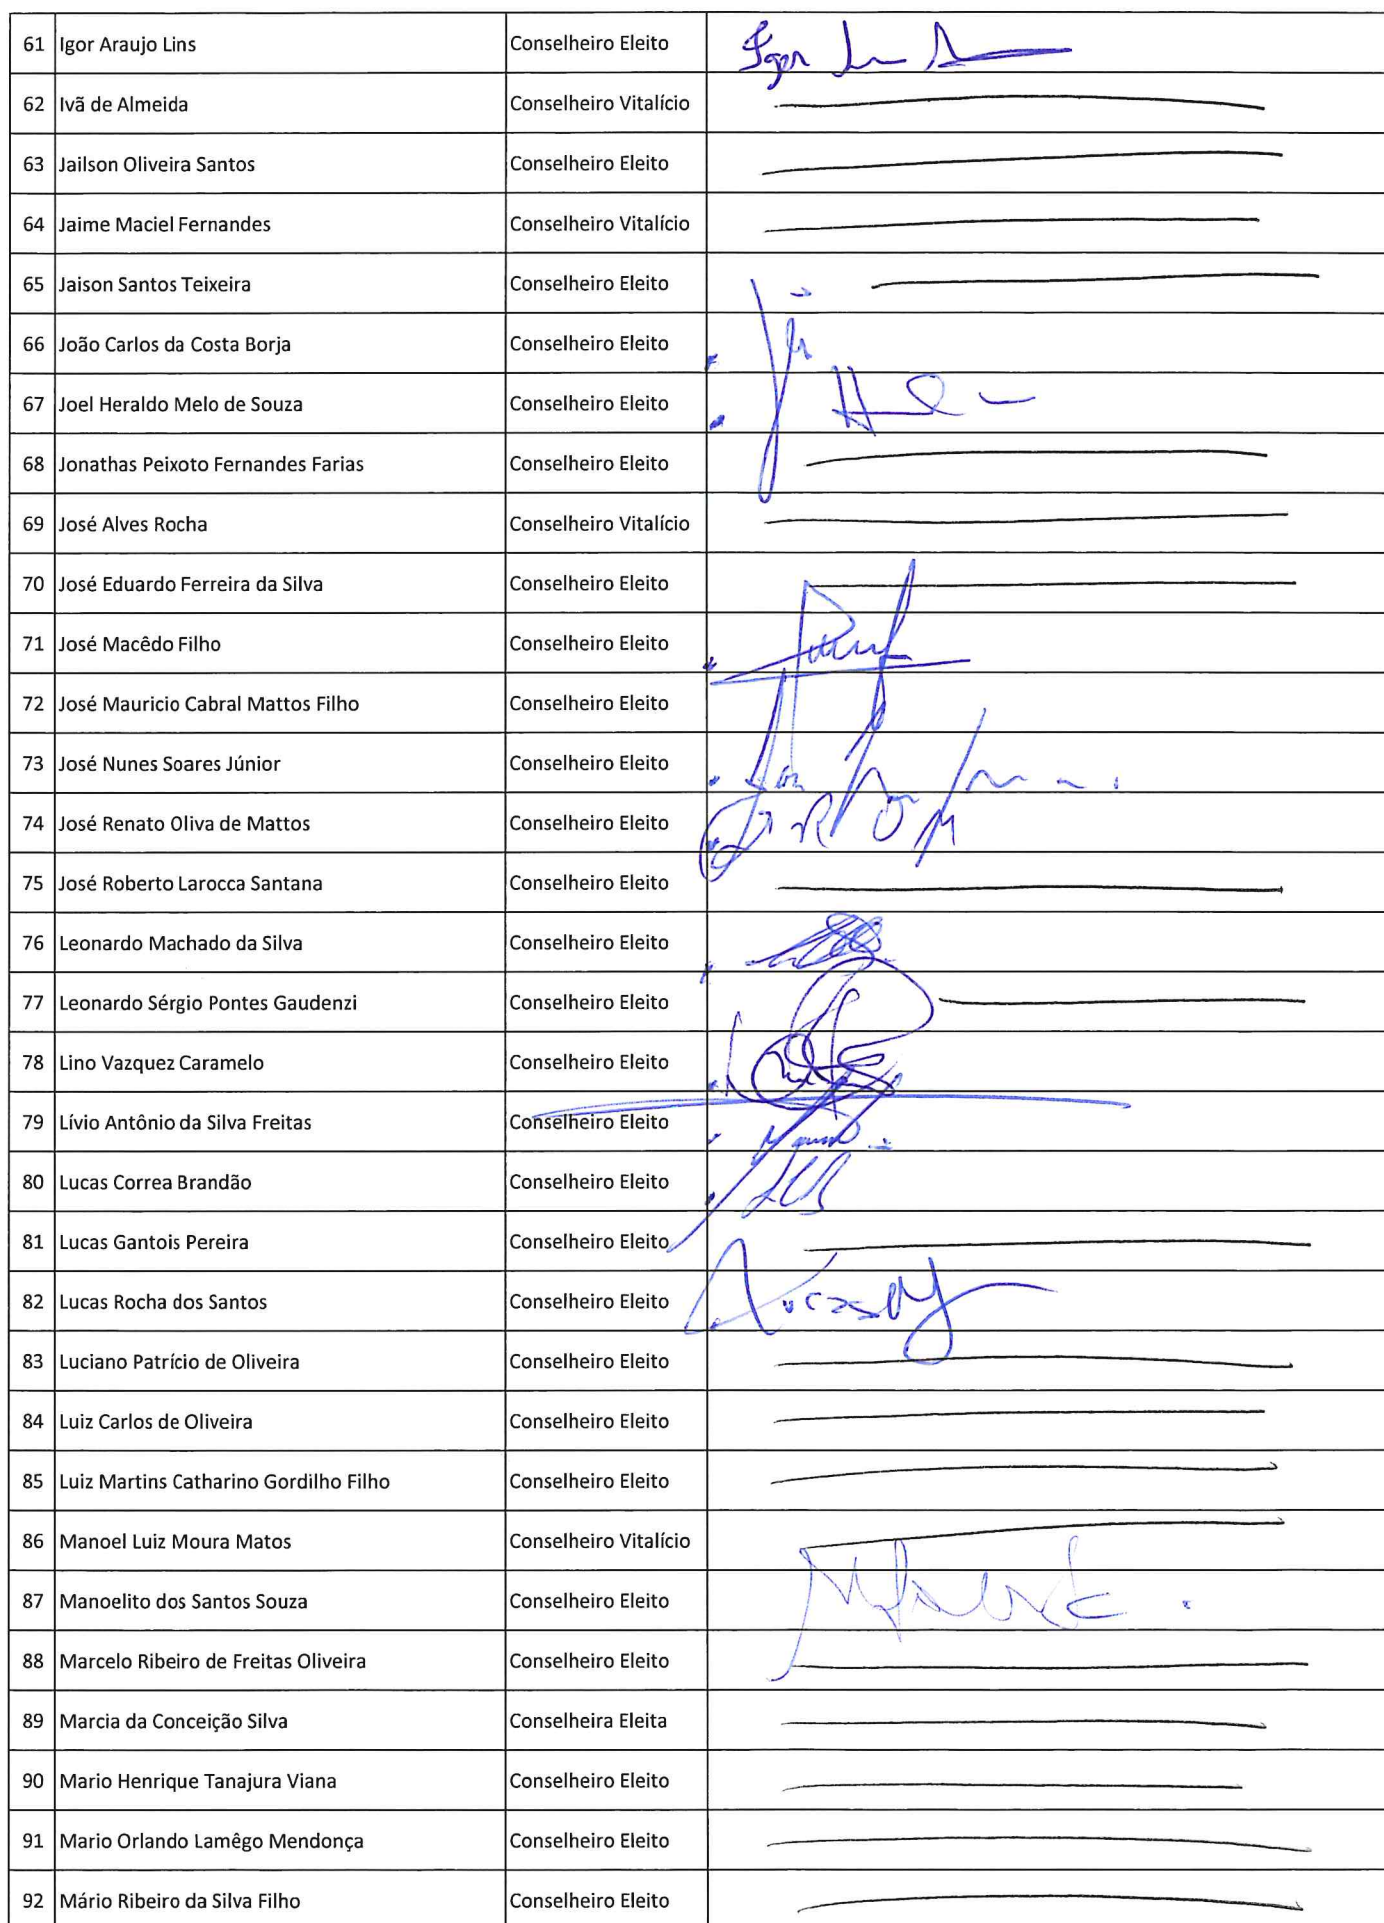 61 Igor Araujo Lins Conselheiro Eleito Igor
62 Ivã de Almeida Conselheiro Vitalício
63 Jailson Oliveira Santos Conselheiro Eleito
64 Jaime Maciel Fernandes Conselheiro Vitalício
65 Jaison Santos Teixeira Conselheiro Eleito
66 João Carlos da Costa Borja Conselheiro Eleito
67 Joel Heraldo Melo de Souza Conselheiro Eleito
68 Jonathas Peixoto Fernandes Farias Conselheiro Eleito
69 José Alves Rocha Conselheiro Vitalício
70 José Eduardo Ferreira da Silva Conselheiro Eleito
71 José Macêdo Filho Conselheiro Eleito
72 José Mauricio Cabral Mattos Filho Conselheiro Eleito
73 José Nunes Soares Júnior Conselheiro Eleito
74 José Renato Oliva de Mattos Conselheiro Eleito
75 José Roberto Larocca Santana Conselheiro Eleito
76 Leonardo Machado da Silva Conselheiro Eleito
77 Leonardo Sérgio Pontes Gaudenzi Conselheiro Eleito
78 Lino Vazquez Caramelo Conselheiro Eleito
79 Lívio Antônio da Silva Freitas Conselheiro Eleito
80 Lucas Correa Brandão Conselheiro Eleito
81 Lucas Gantois Pereira Conselheiro Eleito
82 Lucas Rocha dos Santos Conselheiro Eleito
83 Luciano Patrício de Oliveira Conselheiro Eleito
84 Luiz Carlos de Oliveira Conselheiro Eleito
85 Luiz Martins Catharino Gordilho Filho Conselheiro Eleito
86 Manoel Luiz Moura Matos Conselheiro Vitalício
87 Manoelito dos Santos Souza Conselheiro Eleito
88 Marcelo Ribeiro de Freitas Oliveira Conselheiro Eleito
89 Marcia da Conceição Silva Conselheira Eleita
90 Mario Henrique Tanajura Viana Conselheiro Eleito
91 Mario Orlando Lamêgo Mendonça Conselheiro Eleito
92 Mário Ribeiro da Silva Filho Conselheiro Eleito